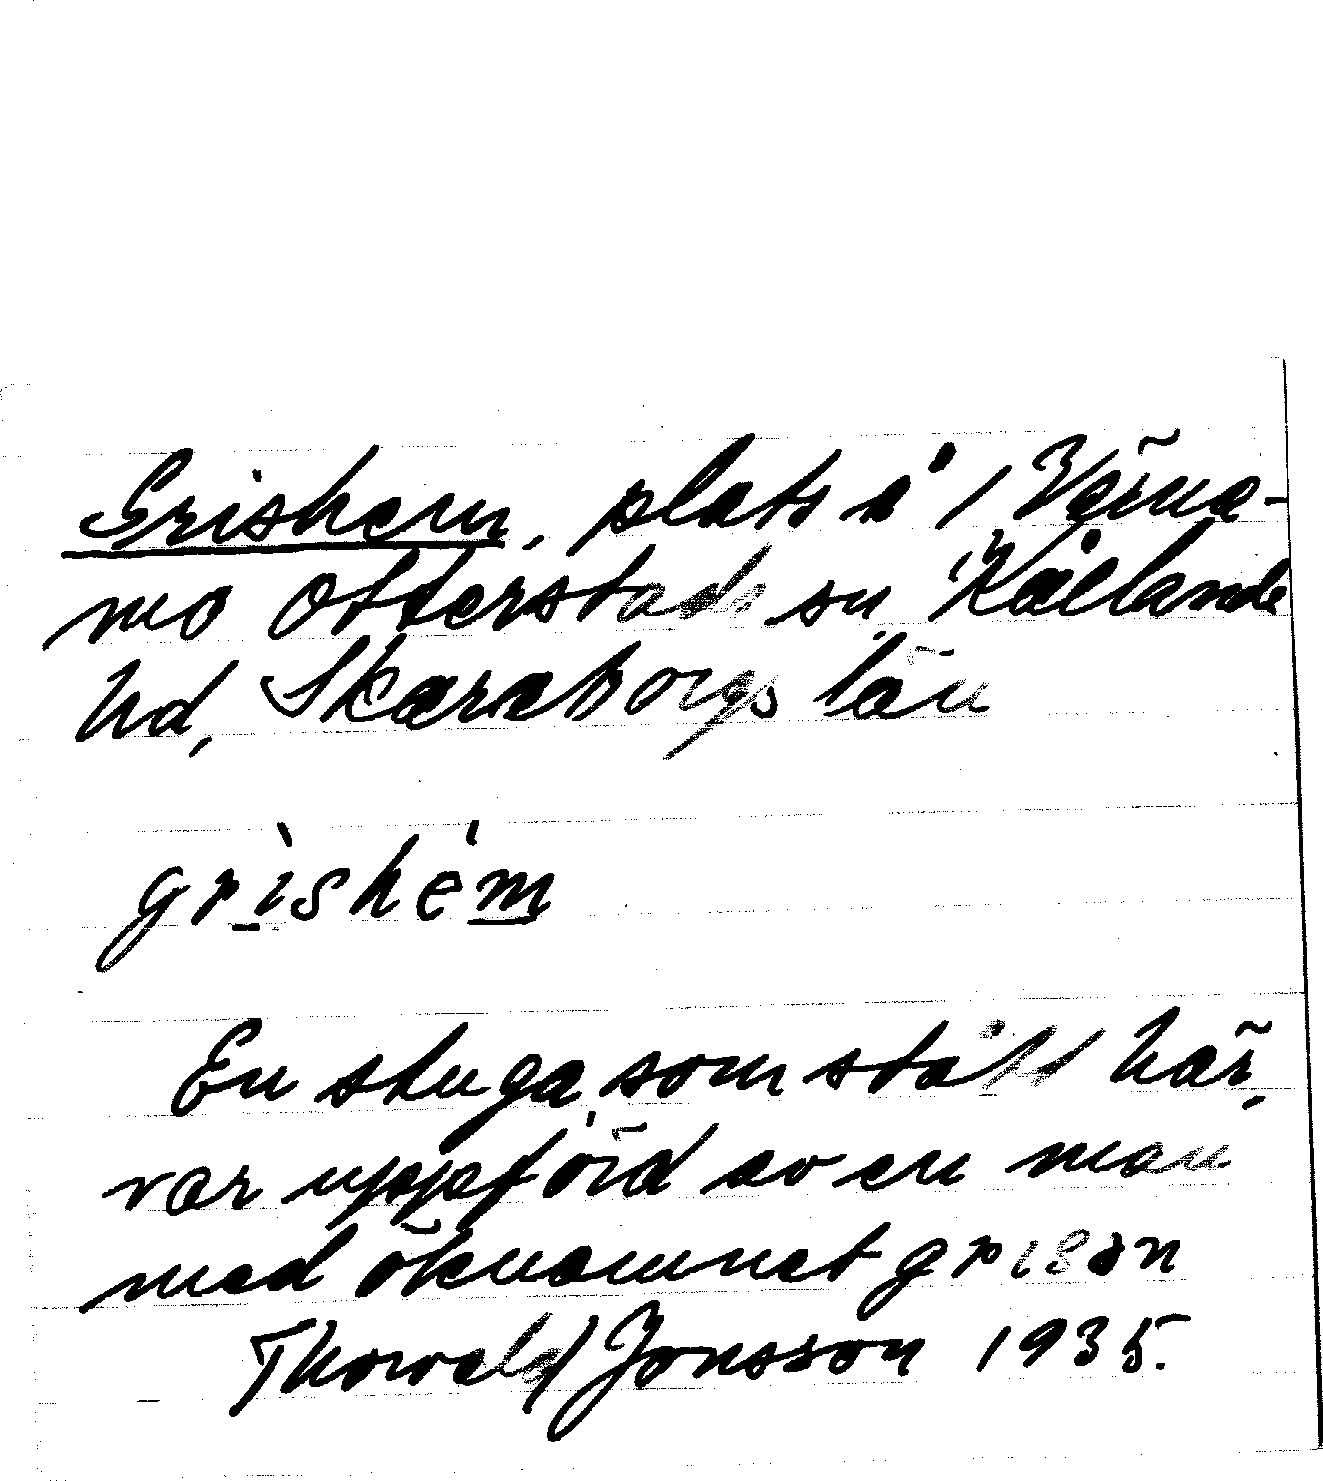 Grishem, plats å 1 Värna-
mo Otterstads sn Kållands
hd, Skaraborgs län
grìshém
En stuga som stått här,
var uppförd av en man
med öknamnet grisən
Thorvald Jonsson 1935.